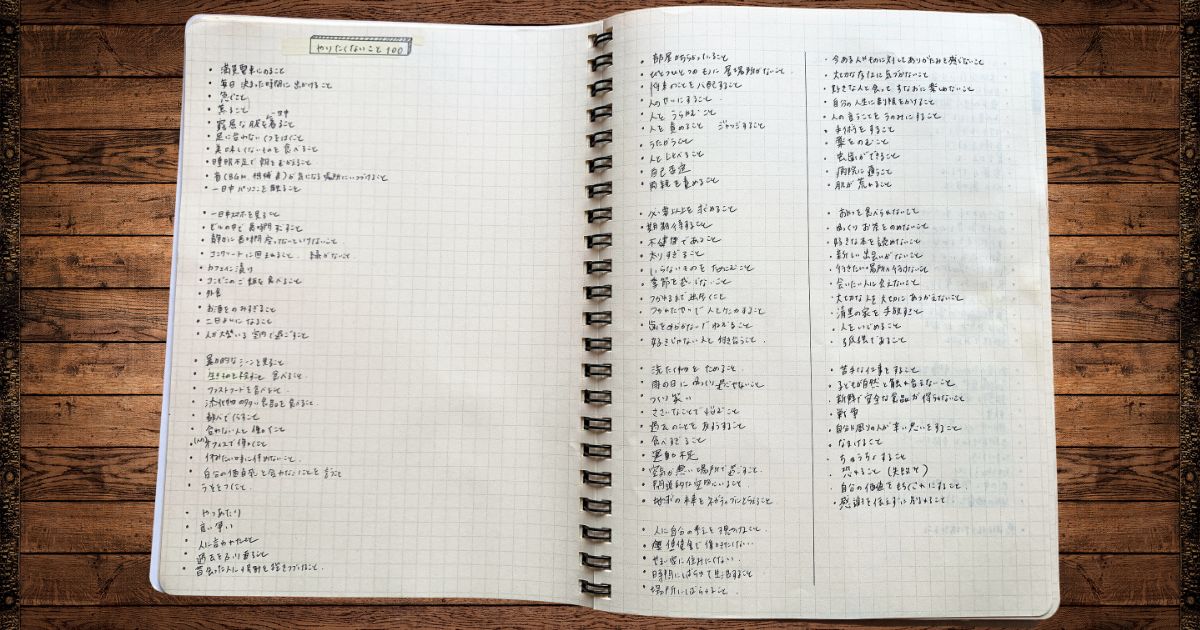 やりたくないこと100
・満員電車にのること
・毎日 決まった時間に出かけること
・急ぐこと
・焦ること
・窮屈な服を一日中着ること
・足に合わないくつをはくこと
・美味しくないものを食べること
・睡眠不足で朝をむかえること
・音(BGM、機械音)が気になる場所にいつづけること
・一日中パソコンを触ること
・一日中スマホを見ること
・ビルの中で長時間すごすこと
・静かに長時間座ってないといけないこと
・コンクリートに囲まれること。緑がないこと
・カフェイン漬け
・コンビニのご飯を食べること
・外食
・お酒をのみすぎること
・二日よいになること
・人が大勢いる室内で過ごすこと
・暴力的なシーンを見ること
・生き物を殺すこと 食べること
・ファストフードを食べること
・添化物の多い食品を食べること
・都会でくらすこと
・合わない人と働くこと
・オフィスで働くこと
・休みたい時に休めないこと
・自分の価値観と合わないことを言うこと
・うそをつくこと
・やつあたり
・言い争い
・過去をふり返ること
・部屋がちらかっていること
・ひとつひとつのモノに居場所がないこと
・将来のことを心配すること
・人のせいにすること
・人をうらむこと
・人を責めること ジャッジすること
・うたがうこと
・人とくらべること
・自己否定
・両親を責めること
・必要以上を求めること
・期待すること
・不健康であること
・太りすぎること
・いらないものをためこむこと
・季節を感じないこと
・つかれるまで出歩くこと
・つかれたせいで人とケンカすること
・歯をみがかないでねること
・好きじゃない人と付き合うこと
・洗たく物をためること
・雨の日にゆっくり過ごせないこと
・つくり笑い
・ささいなことで悩むこと
・過去のことを反すうすること
・食べすぎること
・運動不足
・空気が悪い場所で過ごすこと
・閉鎖的な空間にいること
・地球の未来をネガティブにとらえること
・人に自分の考えを押しつけること
・最低賃金で働きたくない
・せまい家に住みたくない
・時間にしばられて生活すること
・場所にしばられること
・今ある人やものに対してありがたみを感じない
・大切な存在に気づかないこと
・好きな人と会って、すなおに楽しめない
・自分の人生に制限をかけること
・人の言うことをうのみにすること
・手術をすること
・薬をのむこと
・虫歯ができること
・病院に通うこと
・肌が荒れること
・おかしを食べられないこと
・ゆっくりお茶をのめないこと
・好きな本を読めないこと
・新しい出会いがないこと
・行きたい場所へ行けないこと
・会いたい人に会えないこと
・大切な人を大切にあつかえないこと
・清里の家を手放すこと
・人をいじめること
・孤独であること
・苦手な仕事をすること
・子どもが自然と触れ合えないこと
・新鮮で安全な食品が得られないこと
・戦争
・自分と周りの人が辛い思いをすること
・なまけること
・ちゅうちょすること
・恐れること(失敗を)
・自分の価値をないがしろにすること
・感謝を伝えずに別れること